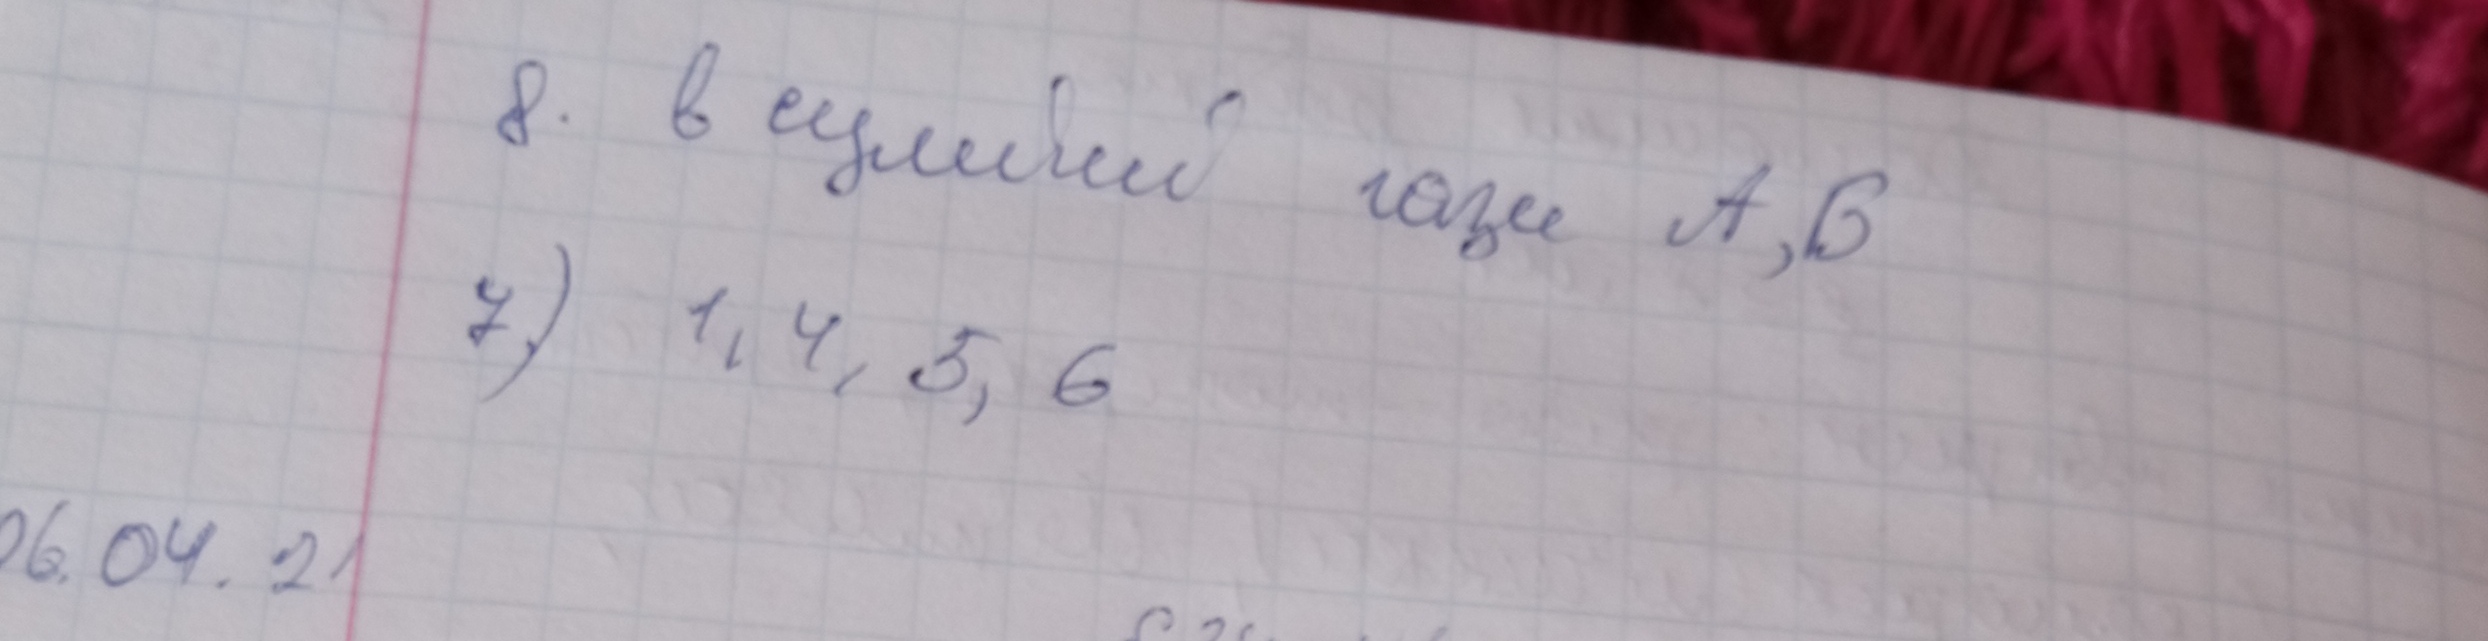 8. в сулыый газы А, Б
7) 1, 4, 5, 6
06.04.21